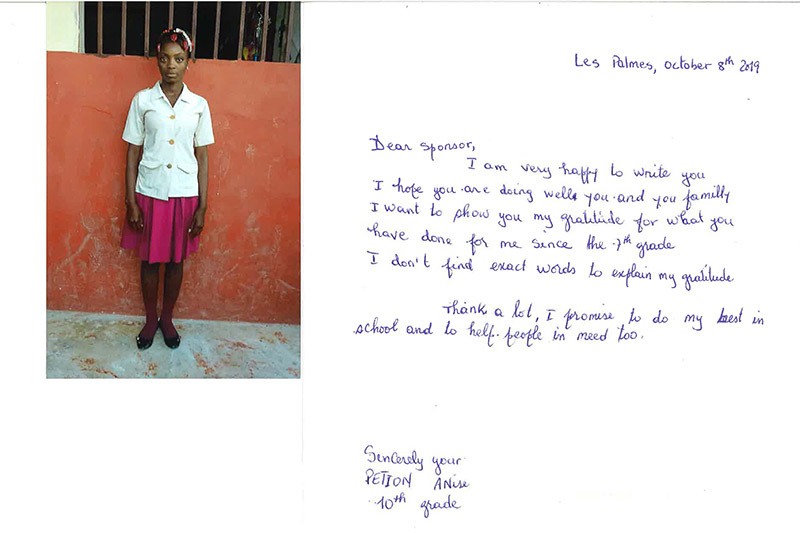 Les Palmes, October 8th 2019
Dear sponsor,
I am very happy to write you
I hope you are doing well, you and you familly
I want to show you my gratitude for what you
have done for me since the 7th grade
I don't find exact words to explain my gratitude
Thank a lot, I promise to do my best in
school and to help people in need too.
Sincerely your
PETION ANise
10th grade